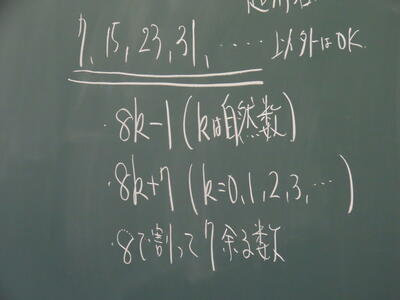 7, 15, 23, 31, ‥‥ 以外はOK.
・8k-1 (kは自然数)
・8k+7 (k=0,1,2,3,…)
・8で割って7余る数